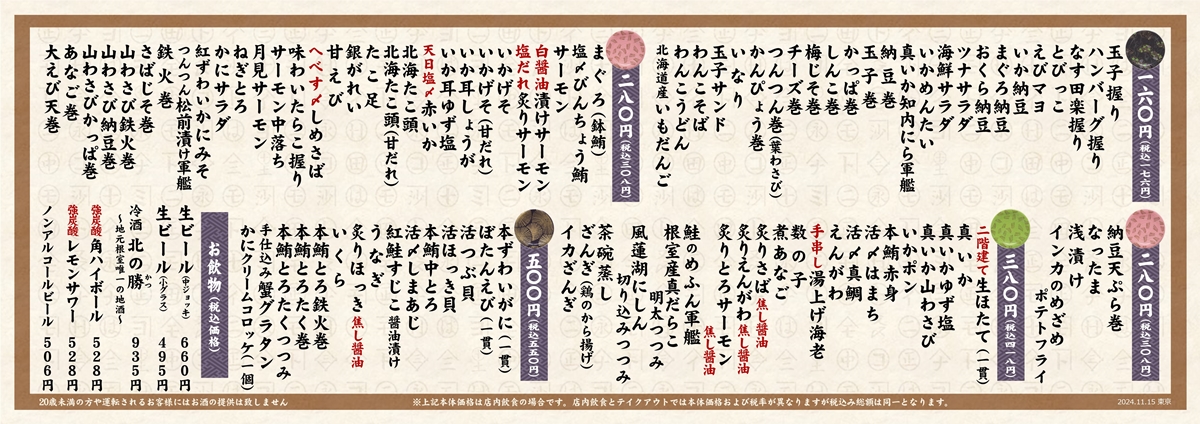 一六〇円(税込一七六円)
玉子握り
ハンバーグ握り
なす田楽握り
とびっこ
えびマヨ
いか納豆
まぐろ納豆
おくら納豆
ツナサラダ
海鮮サラダ
いかめんたい
真いか知内にら軍艦
納豆巻
玉子巻
かっぱ巻
しんこ巻
梅じそ巻
チーズ巻
つんつん巻(葉わさび)
かんぴょう巻
いなり
玉子サンド
わんこそば
わんこうどん
北海道産いもだんご
二八〇円(税込三〇八円)
まぐろ(鉢鮪)
塩〆びんちょう鮪
サーモン
白醤油漬けサーモン
塩だれ炙りサーモン
いかげそ
いかげそ(甘だれ)
いか耳しょうが
いか耳ゆず塩
天日塩〆赤いか
北海たこ頭
北海たこ頭(甘だれ)
たこ足
銀がれい
甘えび
へべす〆しめさば
味わいたらこ握り
サーモン中落ち
月見サーモン
ねぎとろ
かにサラダ
紅ずわいかにみそ
つんつん松前漬け軍艦
鉄火巻
さばじそ巻
山わさび鉄火巻
山わさび納豆巻
山わさびかっぱ巻
あなご巻
大えび天巻
二八〇円(税込三〇八円)
納豆天ぷら巻
なったま
浅漬け
インカのめざめ
ポテトフライ
三八〇円(税込四一八円)
二階建て生ほたて(一貫)
真いか
真いかゆず塩
真いか山わさび
いかポン
本鮪赤身
活〆はまち
活〆真鯛
えんがわ
手串し湯上げ海老
数の子
煮あなご
炙りさば焦し醤油
炙りえんがわ焦し醤油
炙りとろサーモン
焦し醤油
鮭のめふん軍艦
根室産真だらこ
明太つつみ
風蓮湖にしん
切り込みつつみ
茶碗蒸し
ざんぎ(鶏のから揚げ)
イカざんぎ
五〇〇円(税込五五〇円)
本ずわいがに(一貫)
ぼたんえび(一貫)
活つぶ貝
活ほっき貝
本鮪中とろ
活〆しまあじ
紅鮭すじこ醤油漬け
うなぎ
炙りほっき焦し醤油
いくら
本鮪とろ鉄火巻
本鮪とろたく巻
本鮪とろたくつつみ
手仕込み蟹グラタン
かにクリームコロッケ(一個)
お飲物(税込価格)
生ビール(中ジョッキ) 660円
生ビール(小グラス) 495円
冷酒 北の勝 935円
かつ
~地元根室唯一の地酒~
強炭酸 角ハイボール 528円
強炭酸 レモンサワー 528円
ノンアルコールビール 506円
20歳未満の方や運転されるお客様にはお酒の提供は致しません
※上記本体価格は店内飲食の場合です。店内飲食とテイクアウトでは本体価格および税率が異なりますが税込み総額は同一となります。
2024.11.15 東京